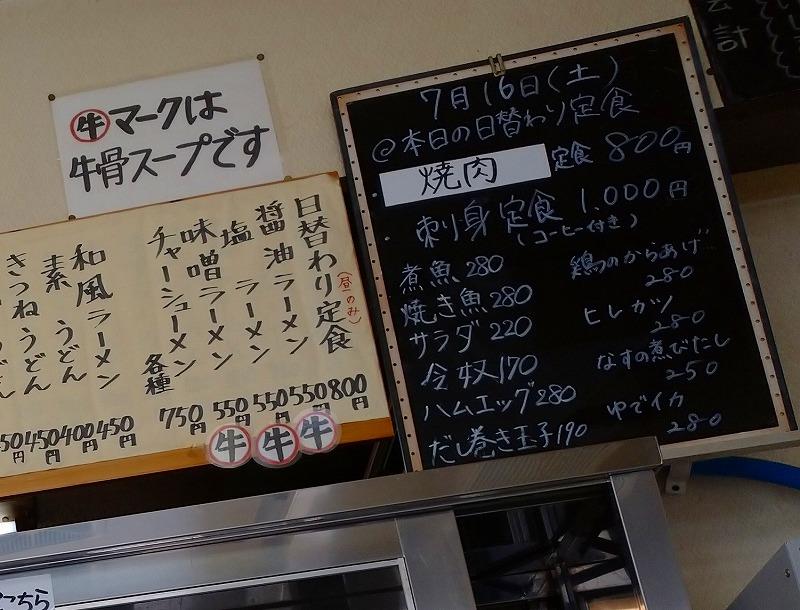 牛マークは
牛骨スープです
日替わり定食
(昼のみ)
800円
醤油ラーメン 550円 牛
塩ラーメン 550円 牛
味噌ラーメン 550円 牛
チャーシューメン各種 750円
和風ラーメン 450円
素うどん 400円
きつねうどん 450円
7月16日(土)
@本日の日替わり定食
焼肉 定食 800円
刺り身定食 1,000円
(コーヒー付き)
煮魚 280
焼き魚 280
サラダ 220
冷奴 170
ハムエッグ 280
だし巻き玉子 190
鶏のからあげ
280
ヒレカツ
280
なすの煮びたし
250
ゆでイカ
280
会計
こちら